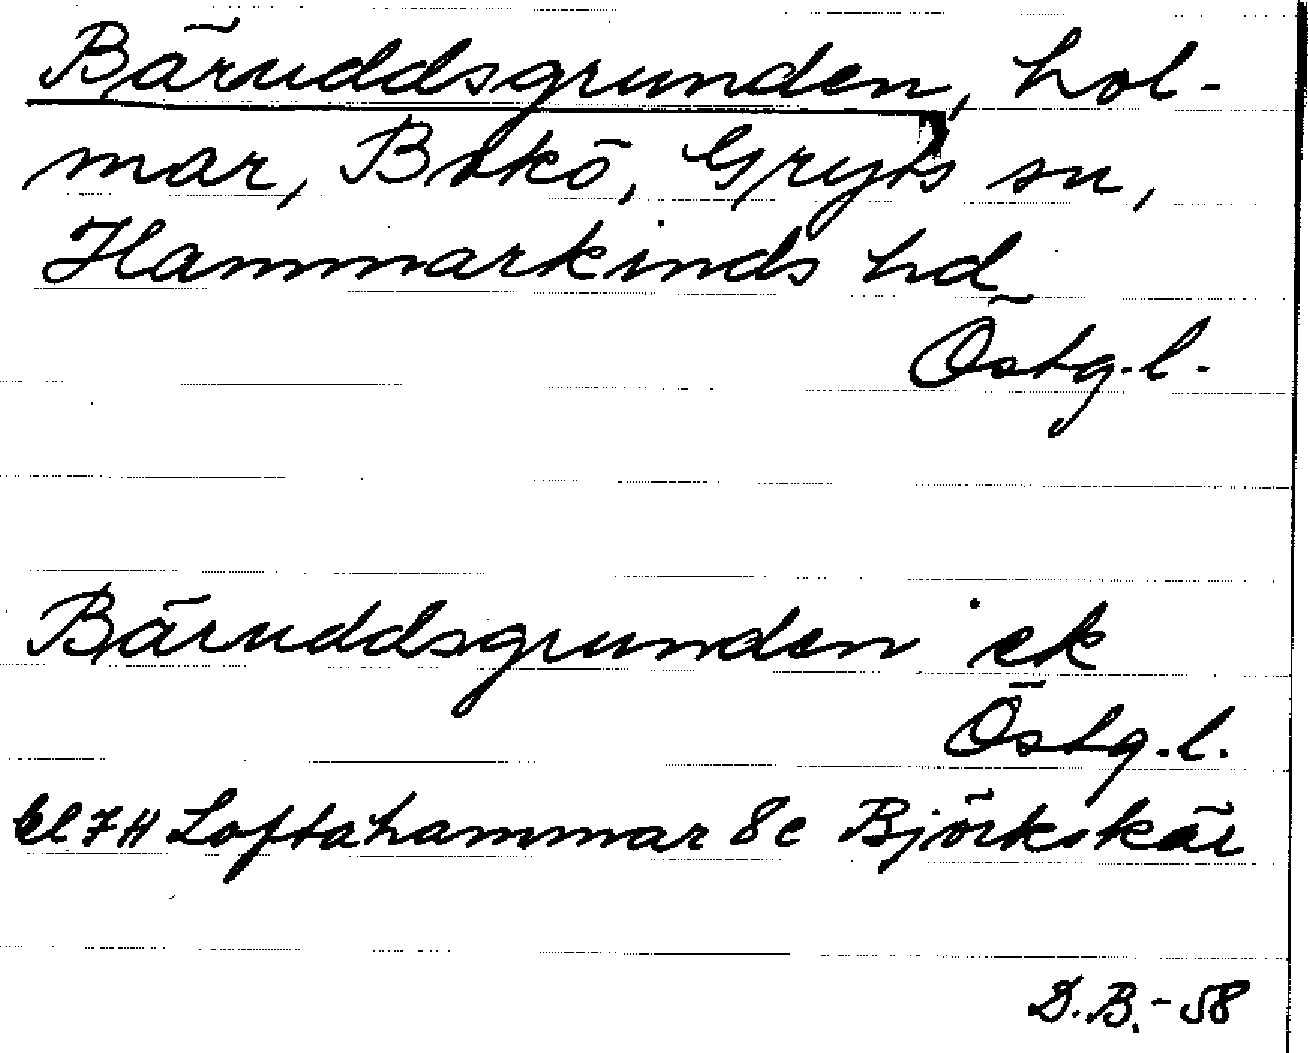 Bäruddsgrunden, hol-
mar, Bokö, Gryts sn,
Hammarkinds hd
Östg.l.
Bäruddsgrunden ek
Östg.l.
7H Loftahammar 8c Björkskär
D.B.-58